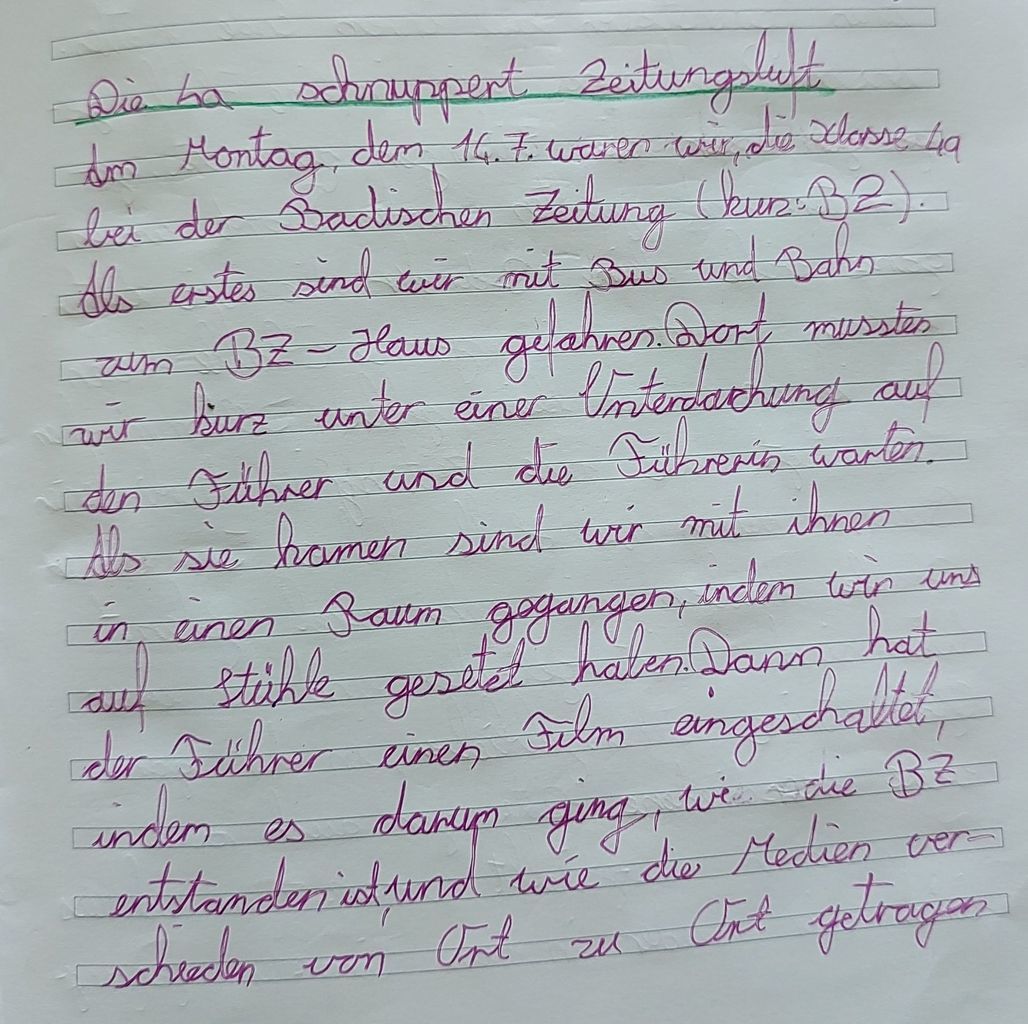 Die 4a schnuppert Zeitungsluft
Am Montag, dem 14.7. waren wir, die Klasse 4a
bei der Badischen Zeitung (kurz: BZ).
Als erstes sind wir mit Bus und Bahn
zum BZ-Haus gefahren. Dort mussten
wir kurz unter einer Unterdachung auf
den Führer und die Führerin warten.
Als sie kamen sind wir mit ihnen
in einen Raum gegangen, indem wir uns
auf Stühle gesetzt haben. Dann hat
der Führer einen Film eingeschaltet,
indem es darum ging, wie die BZ
entstanden ist, und wie die Medien ver-
schieden von Ort zu Ort getragen